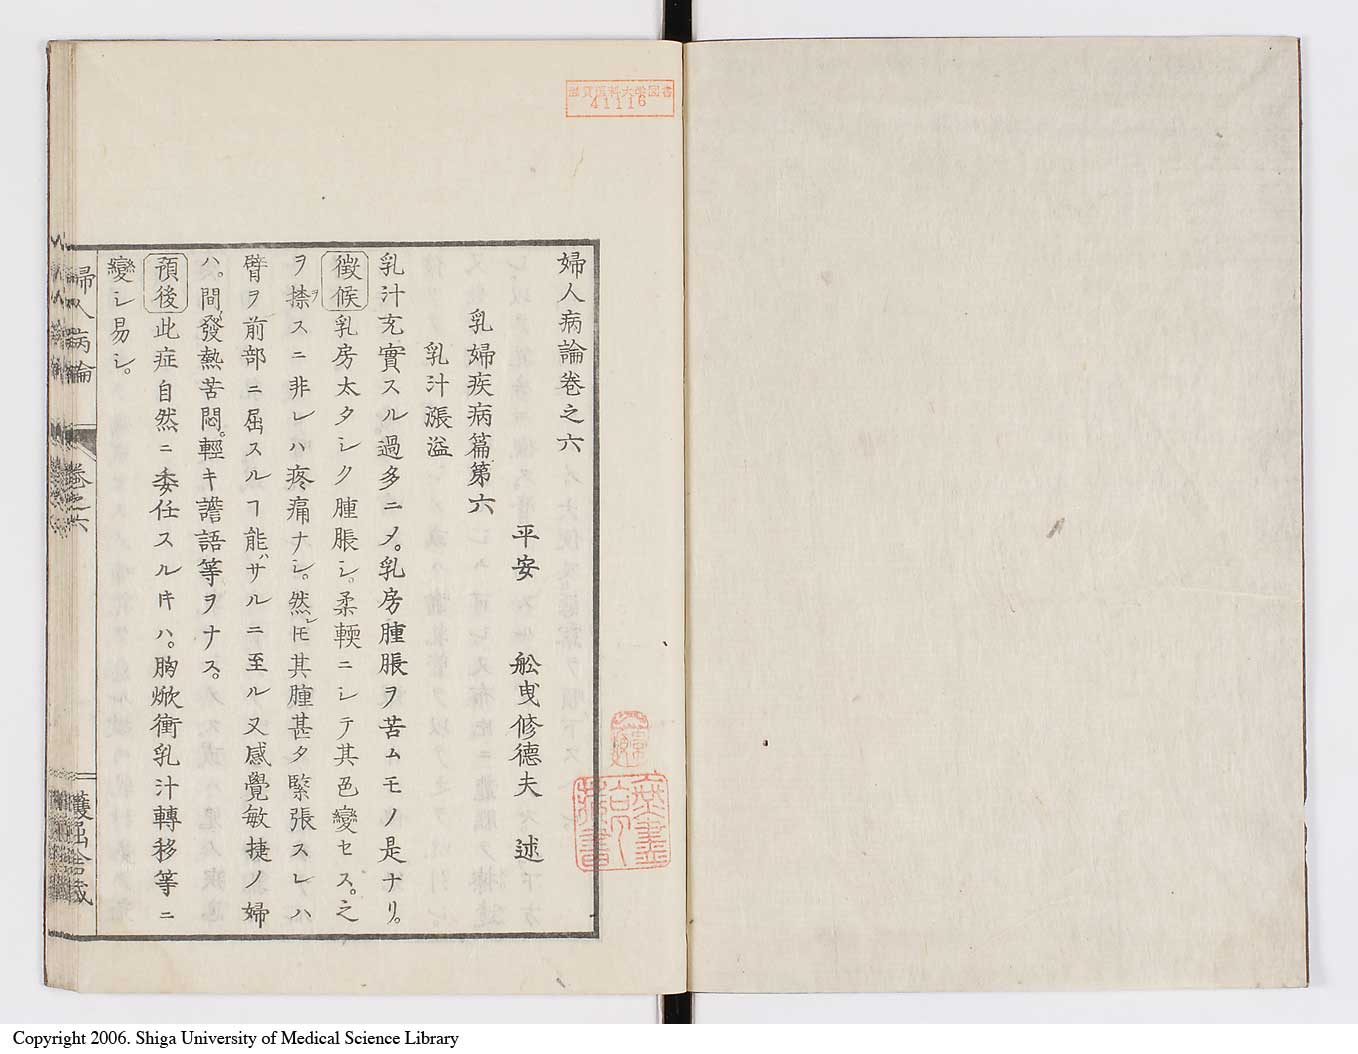 滋賀医科大学図書
41116
婦人病論卷之六
平安 舩曳修德夫 述
乳婦疾病篇第六
乳汁漲溢
乳汁充實スル過多ニメ。乳房腫脹ヲ苦ムモノ是ナリ。
徵候乳房太タシク腫脹シ。柔輭ニシテ其色變セス。之
ヲ捺スニ非レハ疼痛ナシ。然レ𪜈其腫甚タ緊張スレハ
臂ヲ前部ニ屈スルヿ能ハサルニ至ル又感覺敏捷ノ婦
ハ。間發熱苦悶。輕キ譫語等ヲナス。
預後此症自然ニ委任スルキハ。胸焮衝乳汁轉移等ニ
變シ易シ。
婦人病論 卷之六
Copyright 2006. Shiga University of Medical Science Library